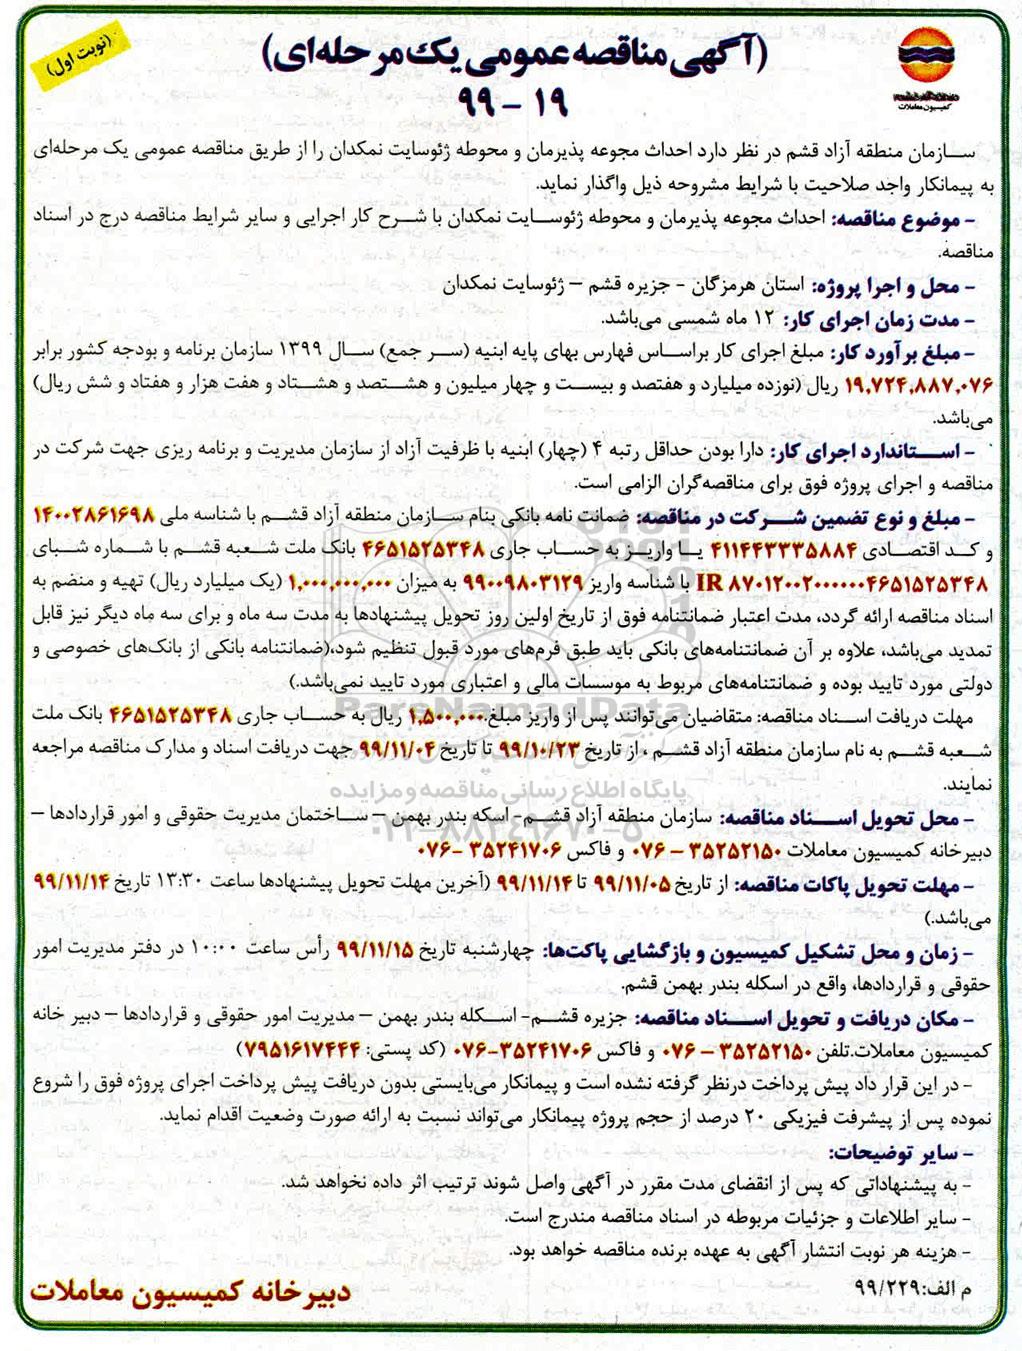 (آگهی مناقصه عمومی یک مرحله‌ای)
(نوبت اول)
۱۹ - ۹۹
کمیسیون معاملات
سازمان منطقه آزاد قشم در نظر دارد احداث مجوعه پذیرمان و محوطه ژئوسایت نمکدان را از طریق مناقصه عمومی یک مرحله‌ای
به پیمانکار واجد صلاحیت با شرایط مشروحه ذیل واگذار نماید.
- موضوع مناقصه: احداث مجوعه پذیرمان و محوطه ژئوسایت نمکدان با شرح کار اجرایی و سایر شرایط مناقصه درج در اسناد
مناقصه.
- محل و اجرا پروژه: استان هرمزگان - جزیره قشم – ژئوسایت نمکدان
- مدت زمان اجرای کار: ۱۲ ماه شمسی می‌باشد.
- مبلغ برآورد کار: مبلغ اجرای کار براساس فهارس بهای پایه ابنیه (سر جمع) سال ۱۳۹۹ سازمان برنامه و بودجه کشور برابر
۱۹,۷۲۴,۸۸۷,۰۷۶ ریال (نوزده میلیارد و هفتصد و بیست و چهار میلیون و هشتصد و هشتاد و هفت هزار و هفتاد و شش ریال)
می‌باشد.
- استاندارد اجرای کار: دارا بودن حداقل رتبه ۴ (چهار) ابنیه با ظرفیت آزاد از سازمان مدیریت و برنامه ریزی جهت شرکت در
مناقصه و اجرای پروژه فوق برای مناقصه‌گران الزامی است.
- مبلغ و نوع تضمین شرکت در مناقصه: ضمانت نامه بانکی بنام سازمان منطقه آزاد قشم با شناسه ملی ۱۴۰۰۲۸۶۱۶۹۸
و کد اقتصادی ۴۱۱۴۴۳۳۳۵۸۸۴ یا واریز به حساب جاری ۴۶۵۱۵۲۵۳۴۸ بانک ملت شعبه قشم با شماره شبای
IR ۸۷۰۱۲۰۰۲۰۰۰۰۰۰۴۶۵۱۵۲۵۳۴۸ با شناسه واریز ۹۹۰۰۹۸۰۳۱۲۹ به میزان ۱,۰۰۰,۰۰۰,۰۰۰ (یک میلیارد ریال) تهیه و منضم به
اسناد مناقصه ارائه گردد، مدت اعتبار ضمانتنامه فوق از تاریخ اولین روز تحویل پیشنهادها به مدت سه ماه و برای سه ماه دیگر نیز قابل
تمدید می‌باشد، علاوه بر آن ضمانتنامه‌های بانکی باید طبق فرم‌های مورد قبول تنظیم شود،(ضمانتنامه بانکی از بانک‌های خصوصی و
دولتی مورد تایید بوده و ضمانتنامه‌های مربوط به موسسات مالی و اعتباری مورد تایید نمی‌باشد.)
مهلت دریافت اسناد مناقصه: متقاضیان می‌توانند پس از واریز مبلغ ۱,۵۰۰,۰۰۰ ریال به حساب جاری ۴۶۵۱۵۲۵۳۴۸ بانک ملت
شعبه قشم به نام سازمان منطقه آزاد قشم ، از تاریخ ۹۹/۱۰/۲۳ تا تاریخ ۹۹/۱۱/۰۴ جهت دریافت اسناد و مدارک مناقصه مراجعه
نمایند.
ParsNamadData
پایگاه اطلاع رسانی مناقصه و مزایده
۰۲۱-۸۸۳۴۹۶۷۰-۵
- محل تحویل اسناد مناقصه: سازمان منطقه آزاد قشم- اسکه بندر بهمن – ساختمان مدیریت حقوقی و امور قراردادها –
دبیرخانه کمیسیون معاملات ۳۵۲۵۲۱۵۰ – ۰۷۶ و فاکس ۳۵۲۴۱۷۰۶ -۰۷۶
- مهلت تحویل پاکات مناقصه: از تاریخ ۹۹/۱۱/۰۵ تا ۹۹/۱۱/۱۴ (آخرین مهلت تحویل پیشنهادها ساعت ۱۳:۳۰ تاریخ ۹۹/۱۱/۱۴
می‌باشد.)
- زمان و محل تشکیل کمیسیون و بازگشایی پاکت‌ها: چهارشنبه تاریخ ۹۹/۱۱/۱۵ رأس ساعت ۱۰:۰۰ در دفتر مدیریت امور
حقوقی و قراردادها، واقع در اسکله بندر بهمن قشم.
- مکان دریافت و تحویل اسناد مناقصه: جزیره قشم- اسکله بندر بهمن – مدیریت امور حقوقی و قراردادها – دبیر خانه
کمیسیون معاملات.تلفن ۳۵۲۵۲۱۵۰ – ۰۷۶ و فاکس ۳۵۲۴۱۷۰۶-۰۷۶ (کد پستی: ۷۹۵۱۶۱۷۴۴۴)
- در این قرار داد پیش پرداخت درنظر گرفته نشده است و پیمانکار می‌بایستی بدون دریافت پیش پرداخت اجرای پروژه فوق را شروع
نموده پس از پیشرفت فیزیکی ۲۰ درصد از حجم پروژه پیمانکار می‌تواند نسبت به ارائه صورت وضعیت اقدام نماید.
- سایر توضیحات:
- به پیشنهاداتی که پس از انقضای مدت مقرر در آگهی واصل شوند ترتیب اثر داده نخواهد شد.
- سایر اطلاعات و جزئیات مربوطه در اسناد مناقصه مندرج است.
- هزینه هر نوبت انتشار آگهی به عهده برنده مناقصه خواهد بود.
م الف:۹۹/۲۲۹
دبیرخانه کمیسیون معاملات